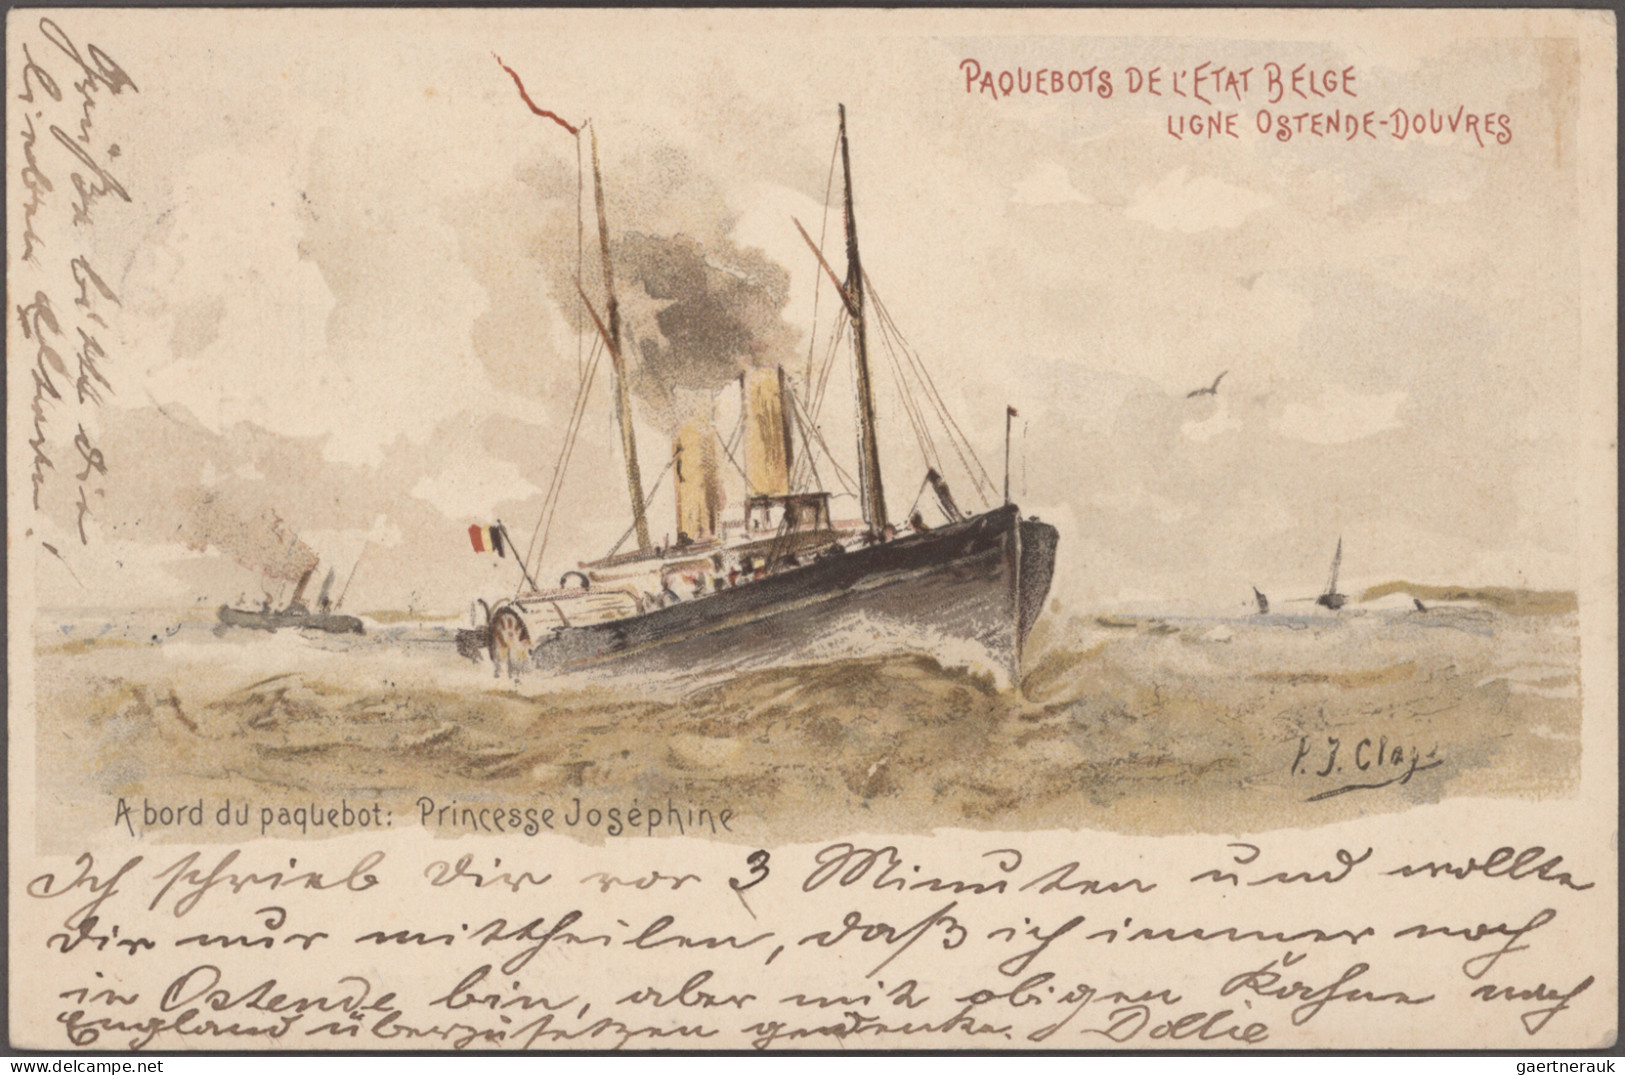 PAQUEBOTS DE L'ETAT BELGE
LIGNE OSTENDE-DOUVRES
P. J. Clays
A bord du paquebot: Princesse Joséphine
Ich schrieb Dir vor 3 Minuten und wollte
Dir nur mittheilen, daß ich immer noch
in Ostende bin, aber mit obigen Kahne nach
England überzusetzen gedenke. Dollie
Grüße bitte die
lieben Eltern!
gaertnerauk